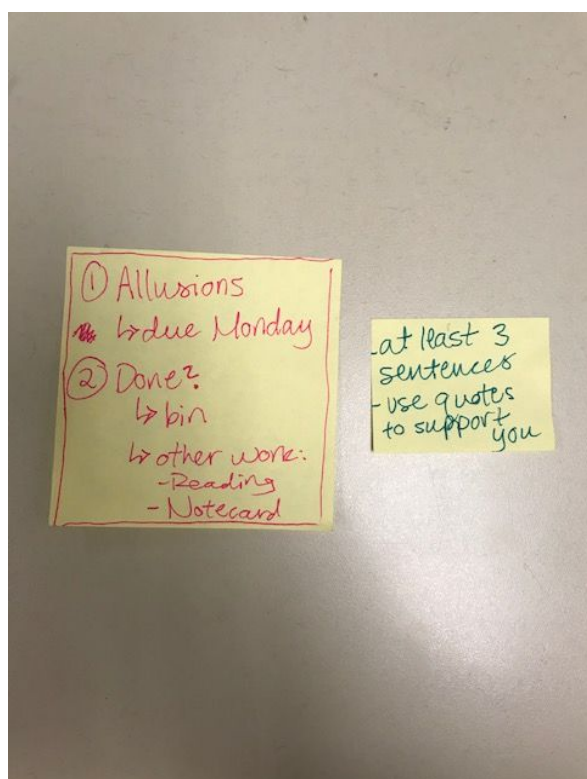 ① Allusions
↳ due Monday
② Done?
↳ bin
↳ other work:
- Reading
- Notecard
- at least 3
sentences
- use quotes
to support
you